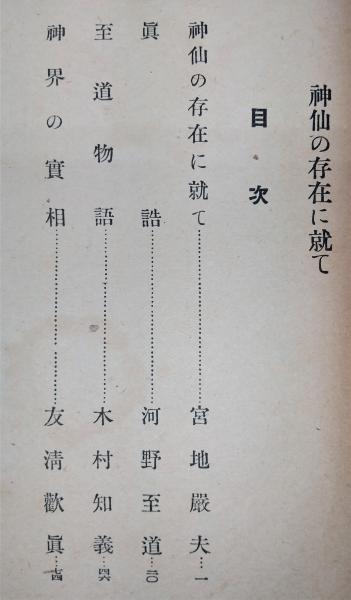 神仙の存在に就て
目次
神仙の存在に就て……………………宮地嚴夫…一
眞誥……………………河野至道…二〇
至道物語……………………木村知義…四六
神界の實相……………………友淸歡眞…七四